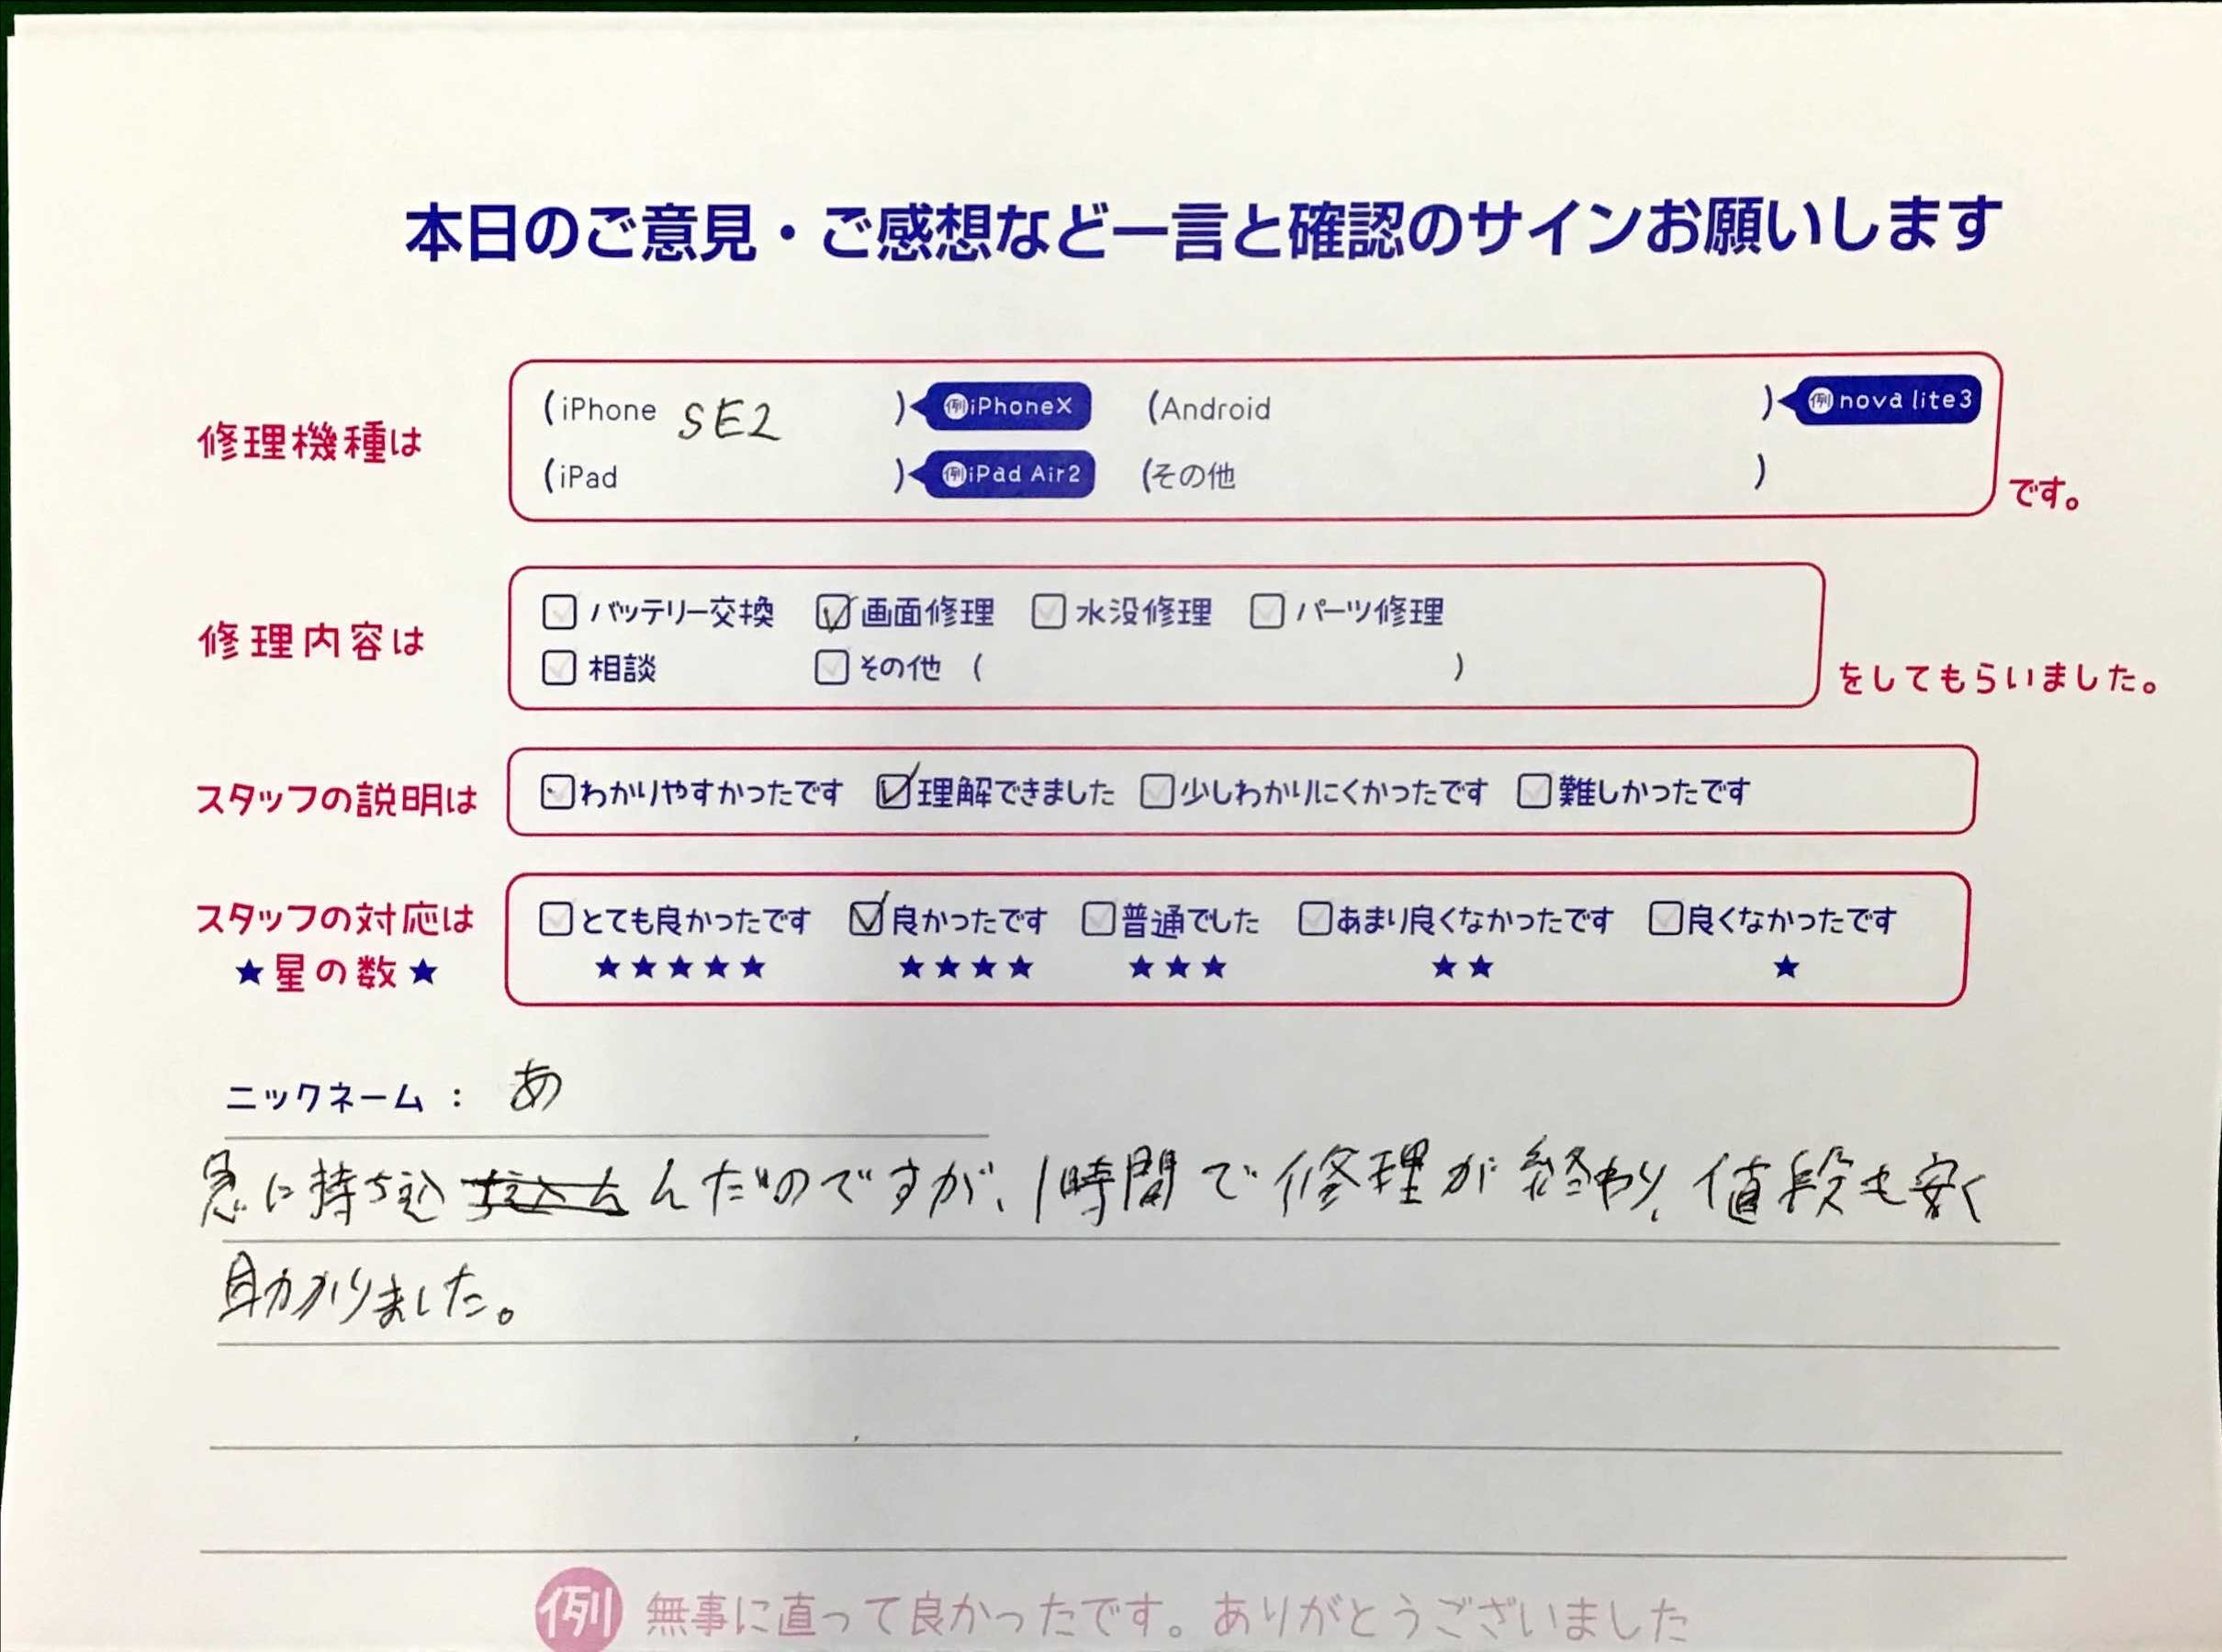 本日のご意見・ご感想など一言と確認のサインお願いします
修理機種は (iPhone SE2 ) 例iPhoneX (Android ) 例nova lite3
(iPad ) 例iPad Air2 (その他 ) です。
修理内容は バッテリー交換 画面修理 水没修理 パーツ修理
相談 その他 ( ) をしてもらいました。
スタッフの説明は わかりやすかったです 理解できました 少しわかりにくかったです 難しかったです
スタッフの対応は とても良かったです 良かったです 普通でした あまり良くなかったです 良くなかったです
★星の数★ ★★★★★ ★★★★ ★★★ ★★ ★
ニックネーム : あ
急に持ち込んだのですが、1時間で修理が終わり、値段も安く
助かりました。
例 無事に直って良かったです。ありがとうございました